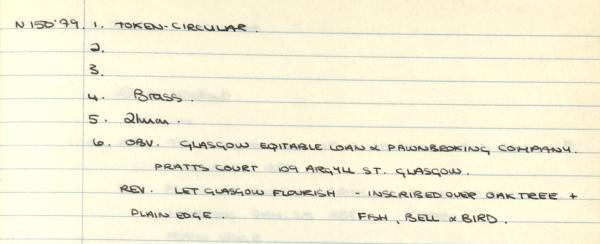 N 150'79. 1. TOKEN-CIRCULAR.
2.
3.
4. Brass.
5. 21mm.
6. OBV. GLASGOW EQITABLE LOAN & PAWNBROKING COMPANY.
PRATTS COURT 109 ARGYLL ST. GLASGOW.
REV. LET GLASGOW FLOURISH - INSCRIBED OVER OAK TREE +
PLAIN EDGE. FISH, BELL & BIRD.